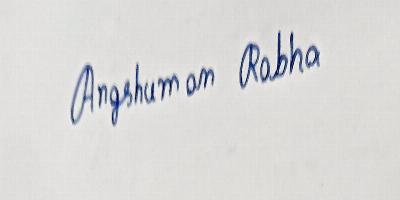 Angshuman Rabha